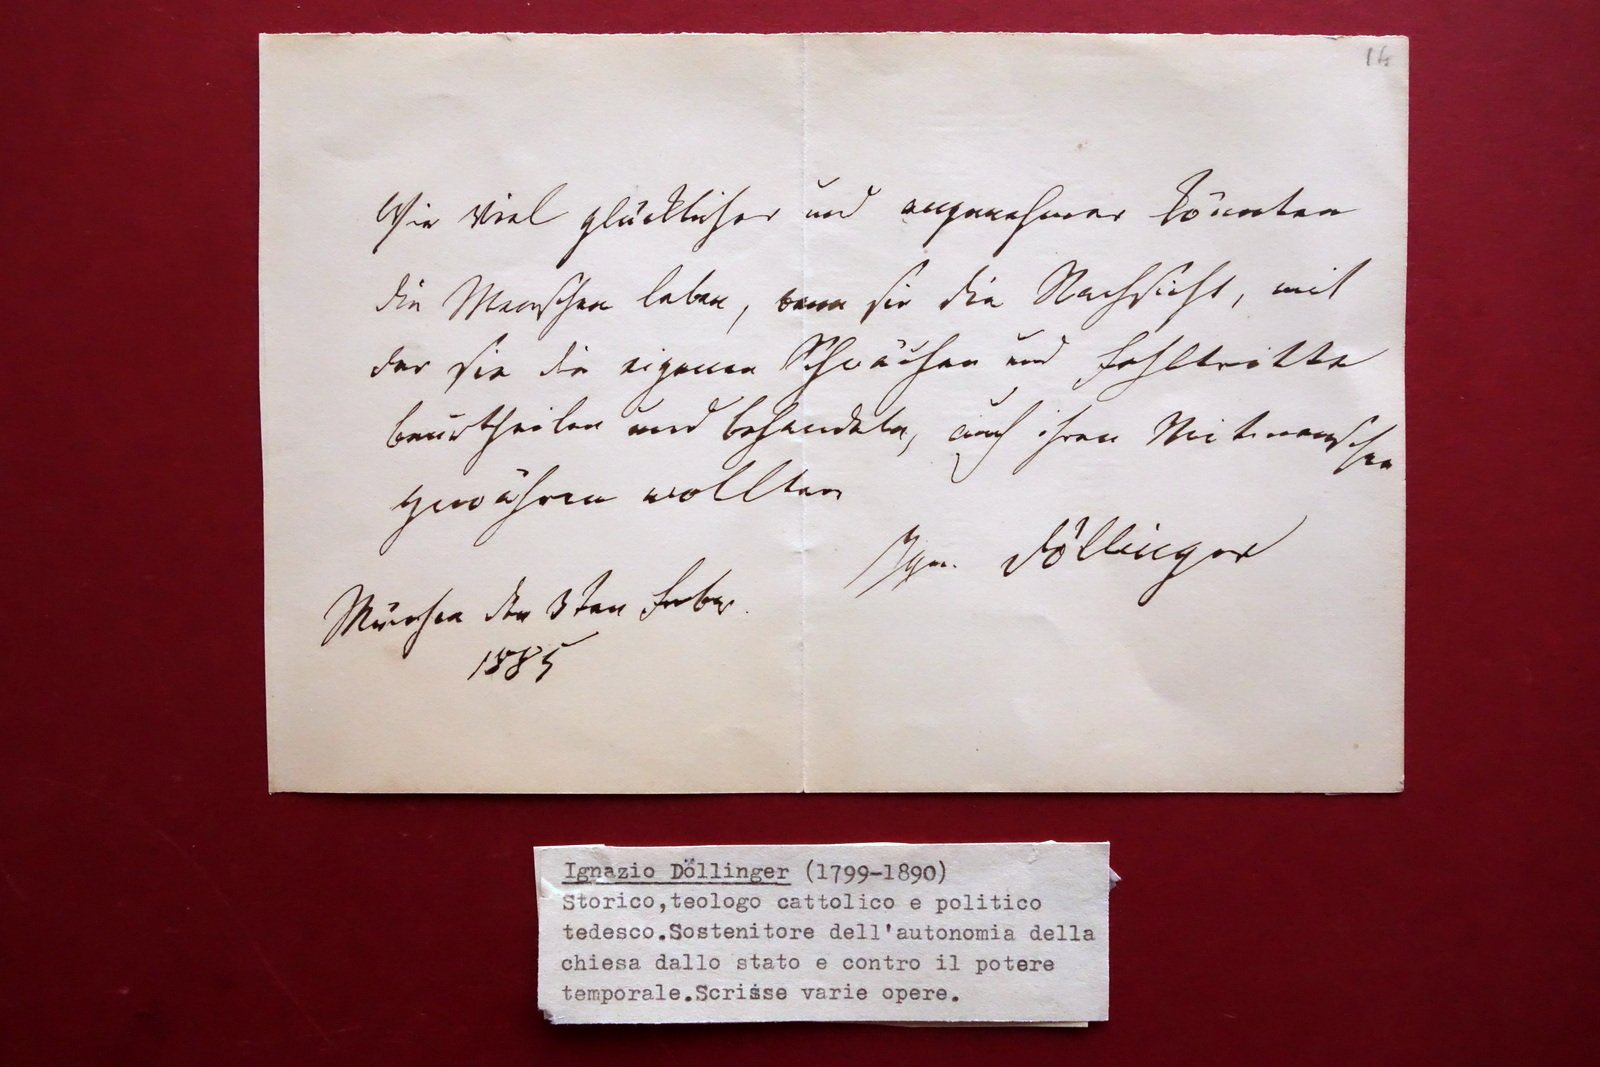 16
Wie viel glücklicher und angenehmer könnten
die Menschen leben, wenn sie die Nachsicht, mit
der sie die eigenen Schwächen und Fehltritte
beurtheilen und behandeln, auch ihren Mitmenschen
gewähren wollten
Ign. Döllinger
München den 3ten
1885
Ignazio Döllinger (1799-1890)
Storico,teologo cattolico e politico
tedesco.Sostenitore dell'autonomia della
chiesa dallo stato e contro il potere
temporale.Scrisse varie opere.